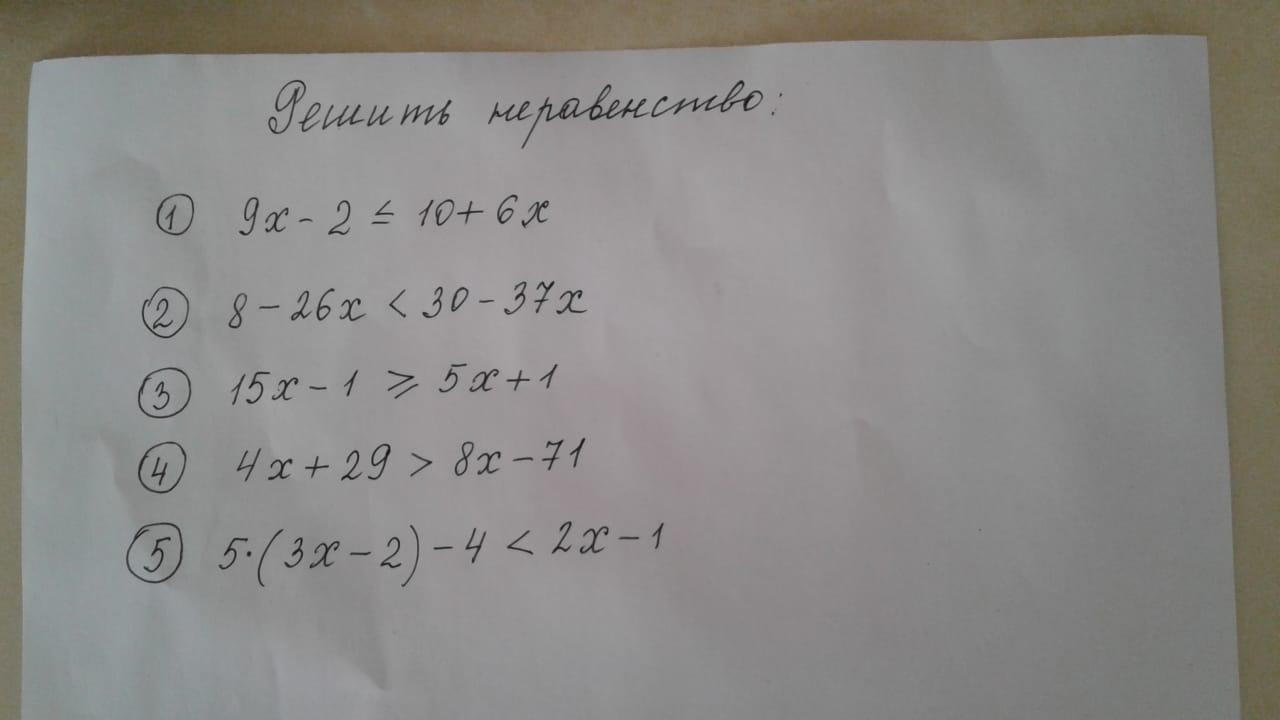 Решить неравенство:
① 9x - 2 ≤ 10 + 6x
② 8 - 26x < 30 - 37x
③ 15x - 1 ⩾ 5x + 1
④ 4x + 29 > 8x - 71
⑤ 5·(3x - 2) - 4 < 2x - 1